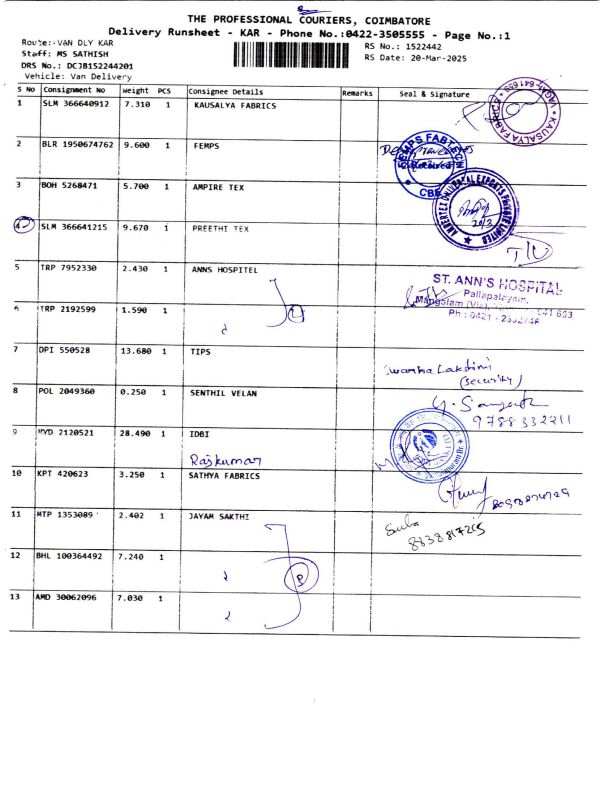 THE PROFESSIONAL COURIERS, COIMBATORE
Delivery Runsheet - KAR - Phone No.:0422-3505555 - Page No.:1
Route:-VAN DLY KAR
RS No.: 1522442
Staff: MS SATHISH
RS Date: 20-Mar-2025
DRS No.: DCJB152244201
Vehicle: Van Delivery
S No Consignment No Weight PCS Consignee Details Remarks Seal & Signature
1 SLM 366640912 7.310 1 KAUSALYA FABRICS
KAUSALYA FABRICS
2 BLR 1950674762 9.600 1 FEMPS
FEMPS FABTECH
CBE
3 BOH 5268471 5.700 1 AMPIRE TEX
4 SLM 366641215 9.670 1 PREETHI TEX
UNIVERSAL EXPORTS PRIVATE LIMITED
20/3
5 TRP 7952330 2.430 1 ANNS HOSPITEL
ST. ANN'S HOSPITAL
Pallapalayam,
Mangalam (Via), 641 663
Ph : 0421 -
6 TRP 2192599 1.590 1
7 DPI 550528 13.680 1 TIPS
Swarna Lakshmi
(Security)
8 POL 2049360 0.250 1 SENTHIL VELAN
9788332211
9 MYD 2120521 28.490 1 IDBI
Rajkumar
10 KPT 420623 3.250 1 SATHYA FABRICS
11 MTP 1353089 2.402 1 JAYAM SAKTHI
Suba
8838817265
12 BHL 100364492 7.240 1
13 AMD 30062096 7.030 1